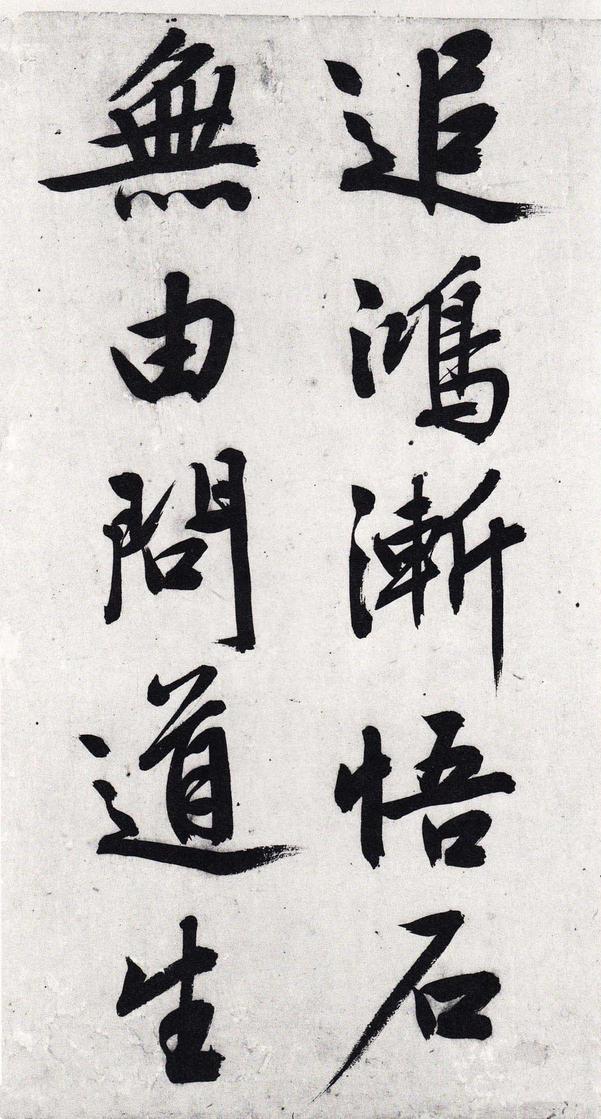 追鴻漸悟石
無由問道生